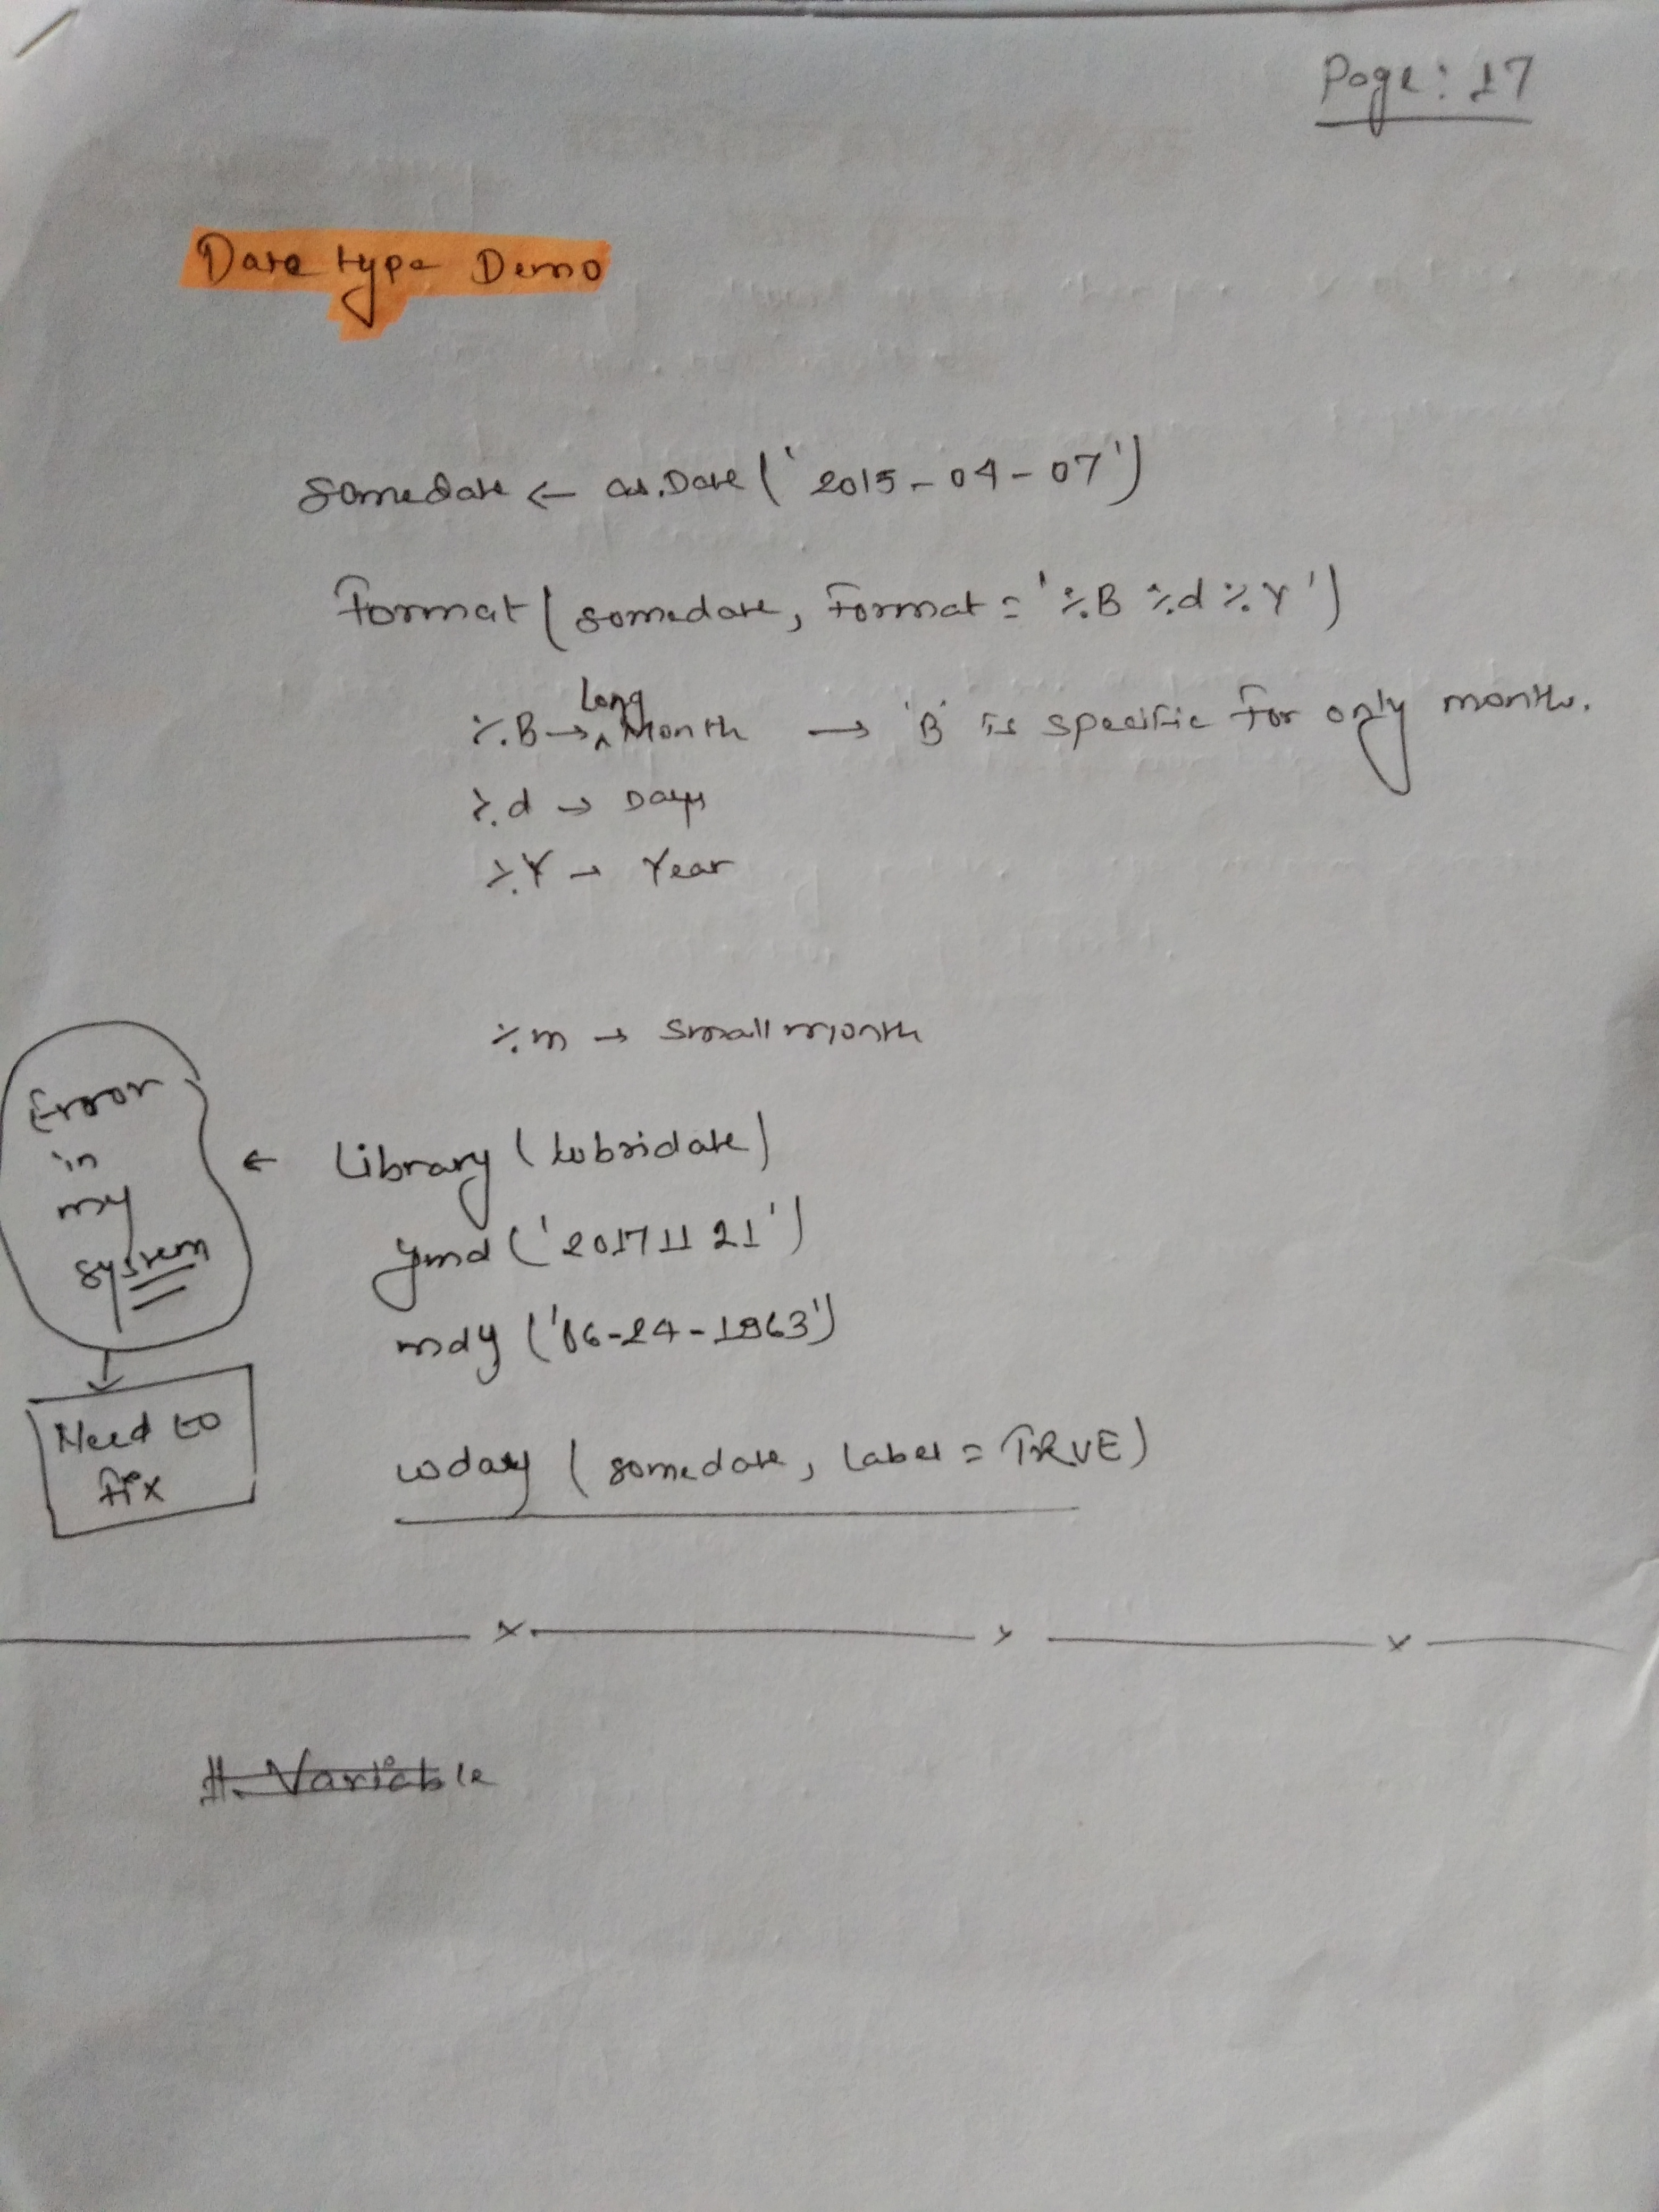 Page: 17
Date type Demo
somedate <- as.Date('2015-04-07')
Format(somedate, Format = '%B %d %Y')
%B → Long Month → 'B' is specific for only month.
%d → Days
%Y → Year
%m → Small month
Error
in
my
system
Need to
fix
← Library (lubridate)
ymd ('20171121')
mdy ('06-24-1963')
wday (somedate, Label = TRUE)
#. Variable